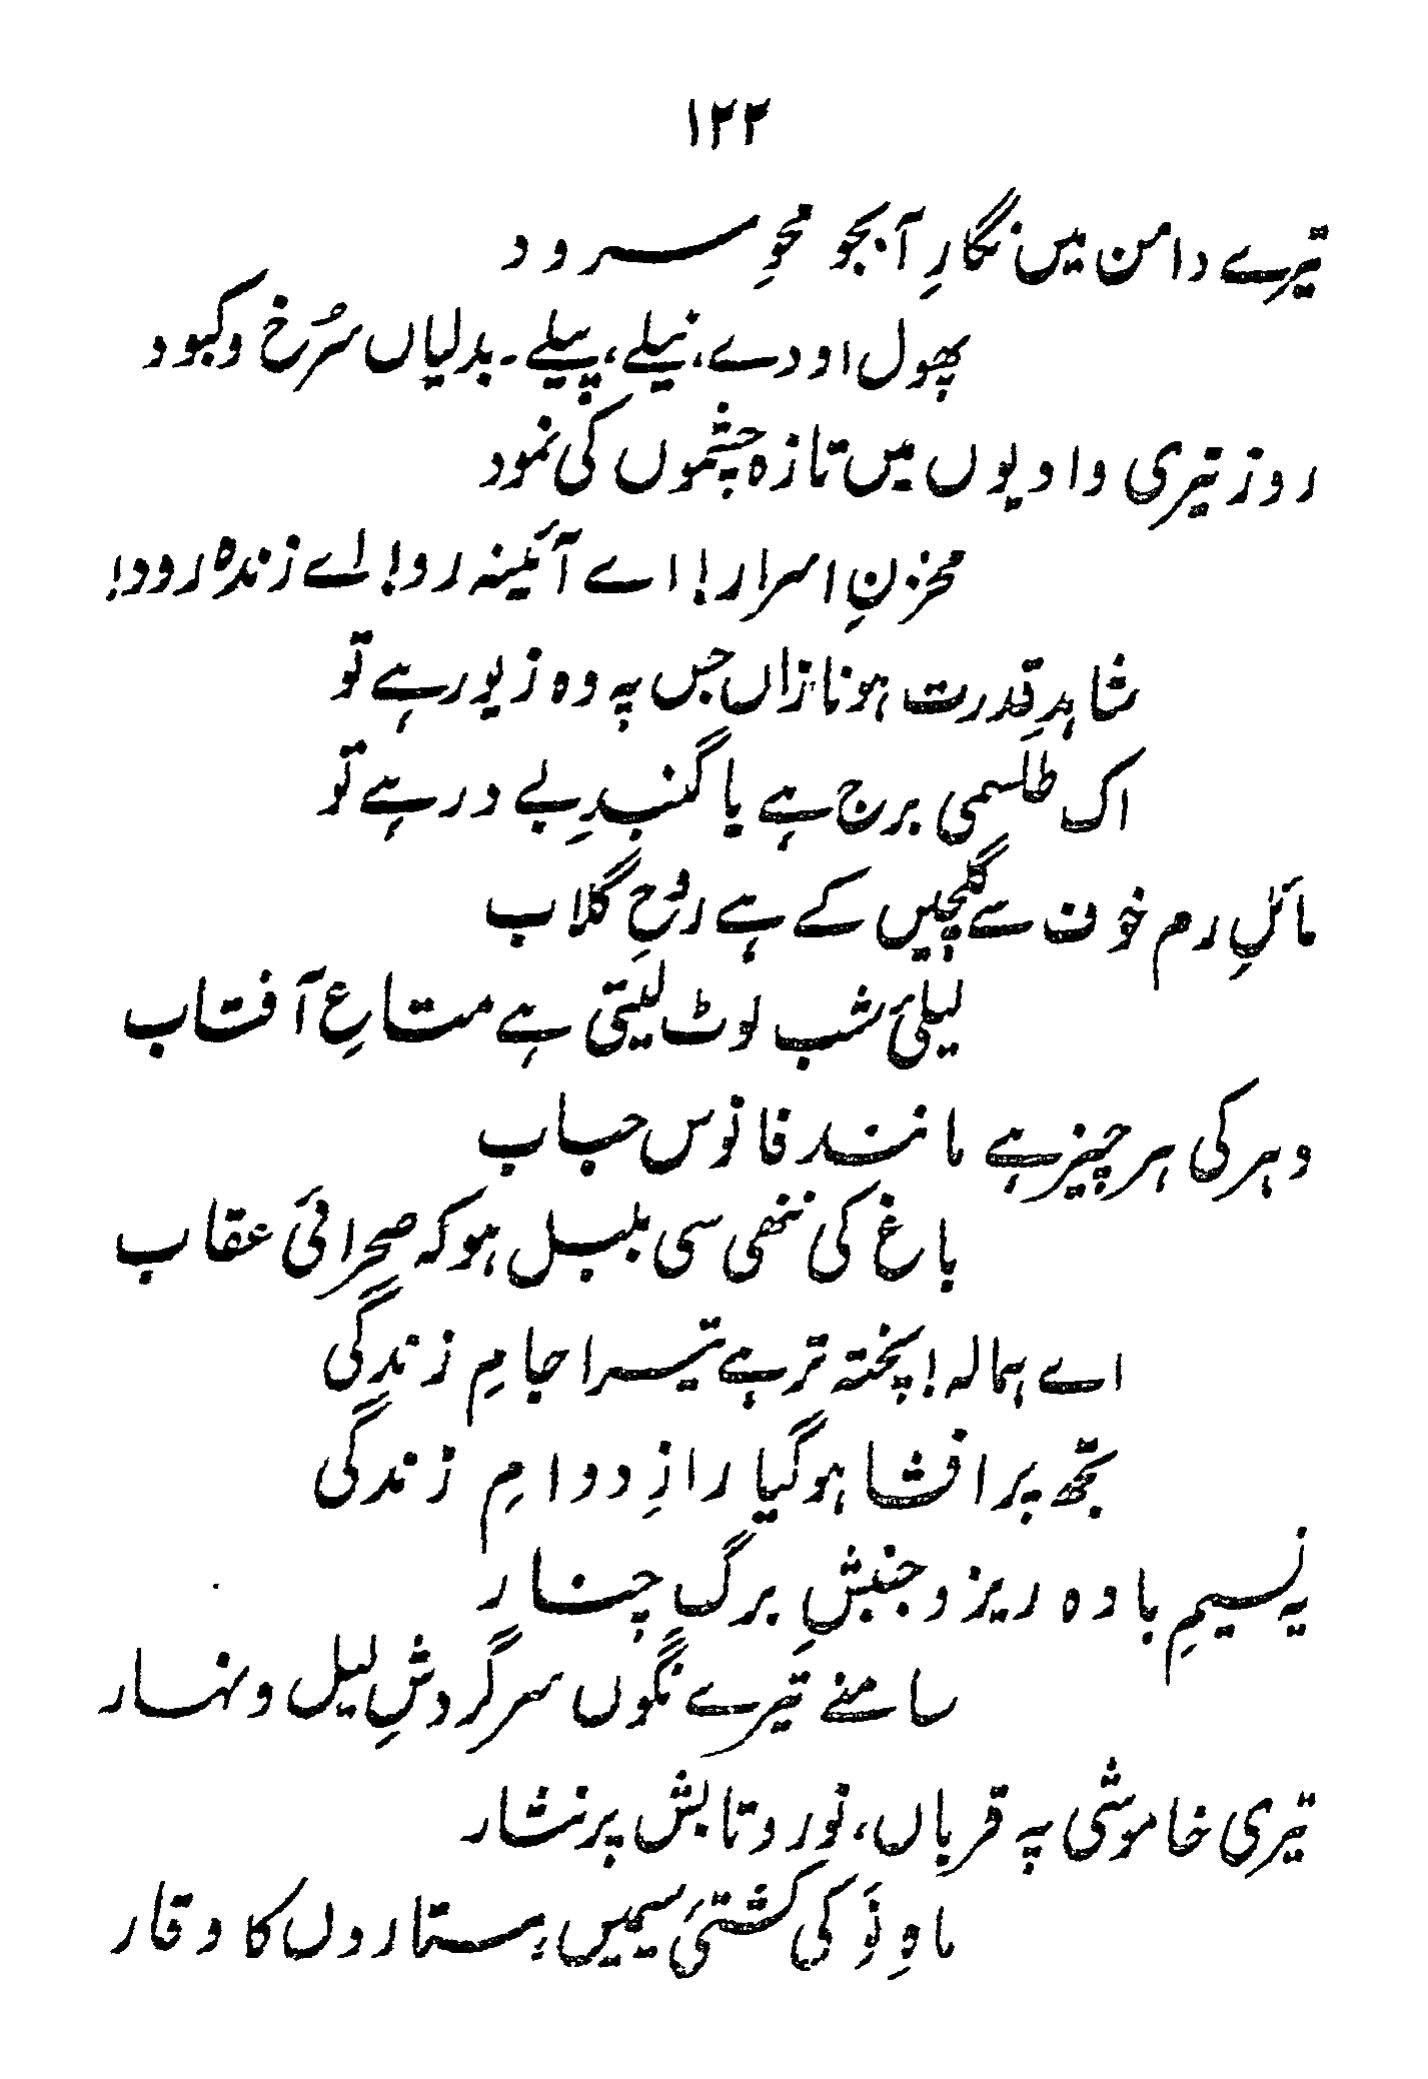 ۱۲۲
تیرے دامن میں نگارِ آبجو محوِ سرود
پھول اودے، نیلے، پیلے۔ بدلیاں سُرخ و کبود
روز تیری وادیوں میں تازہ چشموں کی نمود
مخزنِ اسرار! اے آئینہ رو! اے زندہ رود!
شاہدِ قدرت ہو نازاں جس پہ وہ زیور ہے تو
اک طلسمی برج ہے یا گنبدِ بے در ہے تو
مائلِ رم خون سے گلچیں کے ہے روحِ گلاب
لیلیٔ شب لوٹ لیتی ہے متاعِ آفتاب
دہر کی ہر چیز ہے مانند فانوس حباب
باغ کی ننھی سی بلبل ہو کہ صحرائی عقاب
اے ہمالہ! پختہ تر ہے تیرا جامِ زندگی
تجھ پر افشا ہو گیا رازِ دوامِ زندگی
یہ نسیمِ بادہ ریز و جنبشِ برگِ چنار
سامنے تیرے نگوں سر گردشِ لیل و نہار
تیری خاموشی پہ قرباں، نور و تابش پر نثار
ماہِ نَو کی کشتیٔ سیمیں، ستاروں کا وقار